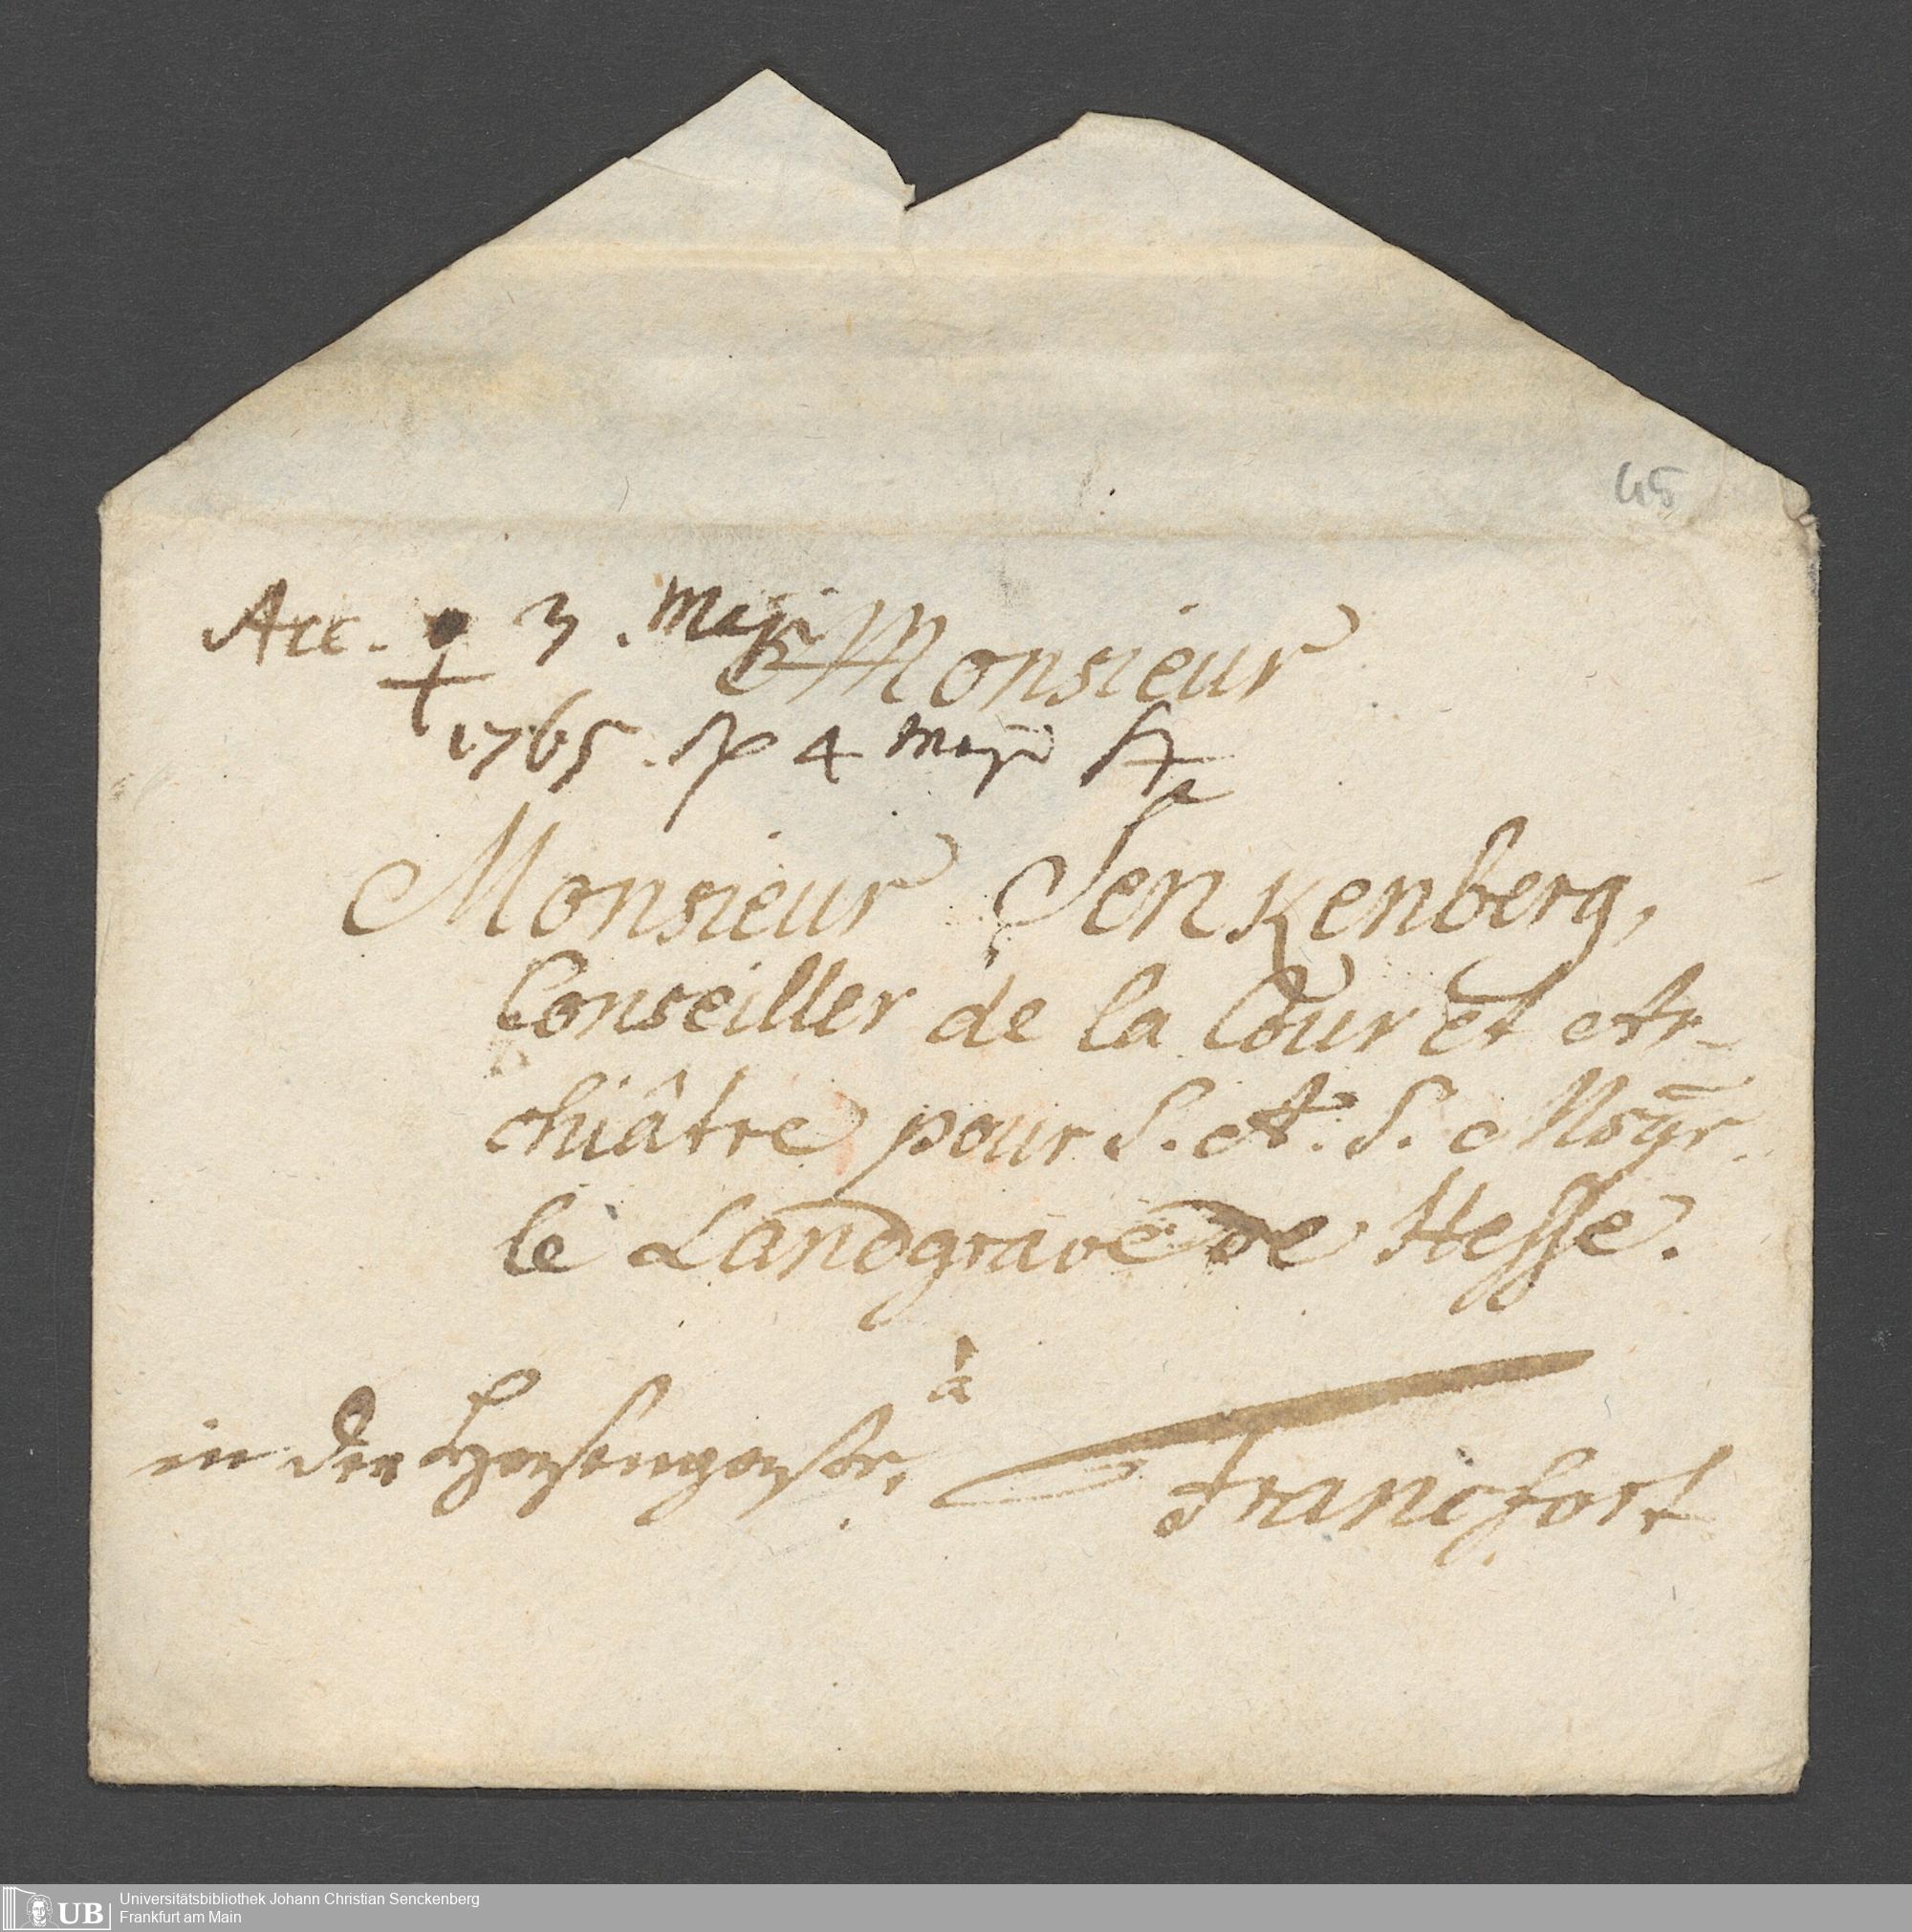 45
Acc. ♀ 3. Maji
Monsieur
1765. 4 Maji
Monsieur Senkenberg,
Conseiller de la Cour et Ar-
chiâtre pour S. A. S. Msgr.
le Landgrave de Hesse.
à
in der Hasengasse,
Francfort
UB
Universitätsbibliothek Johann Christian Senckenberg
Frankfurt am Main